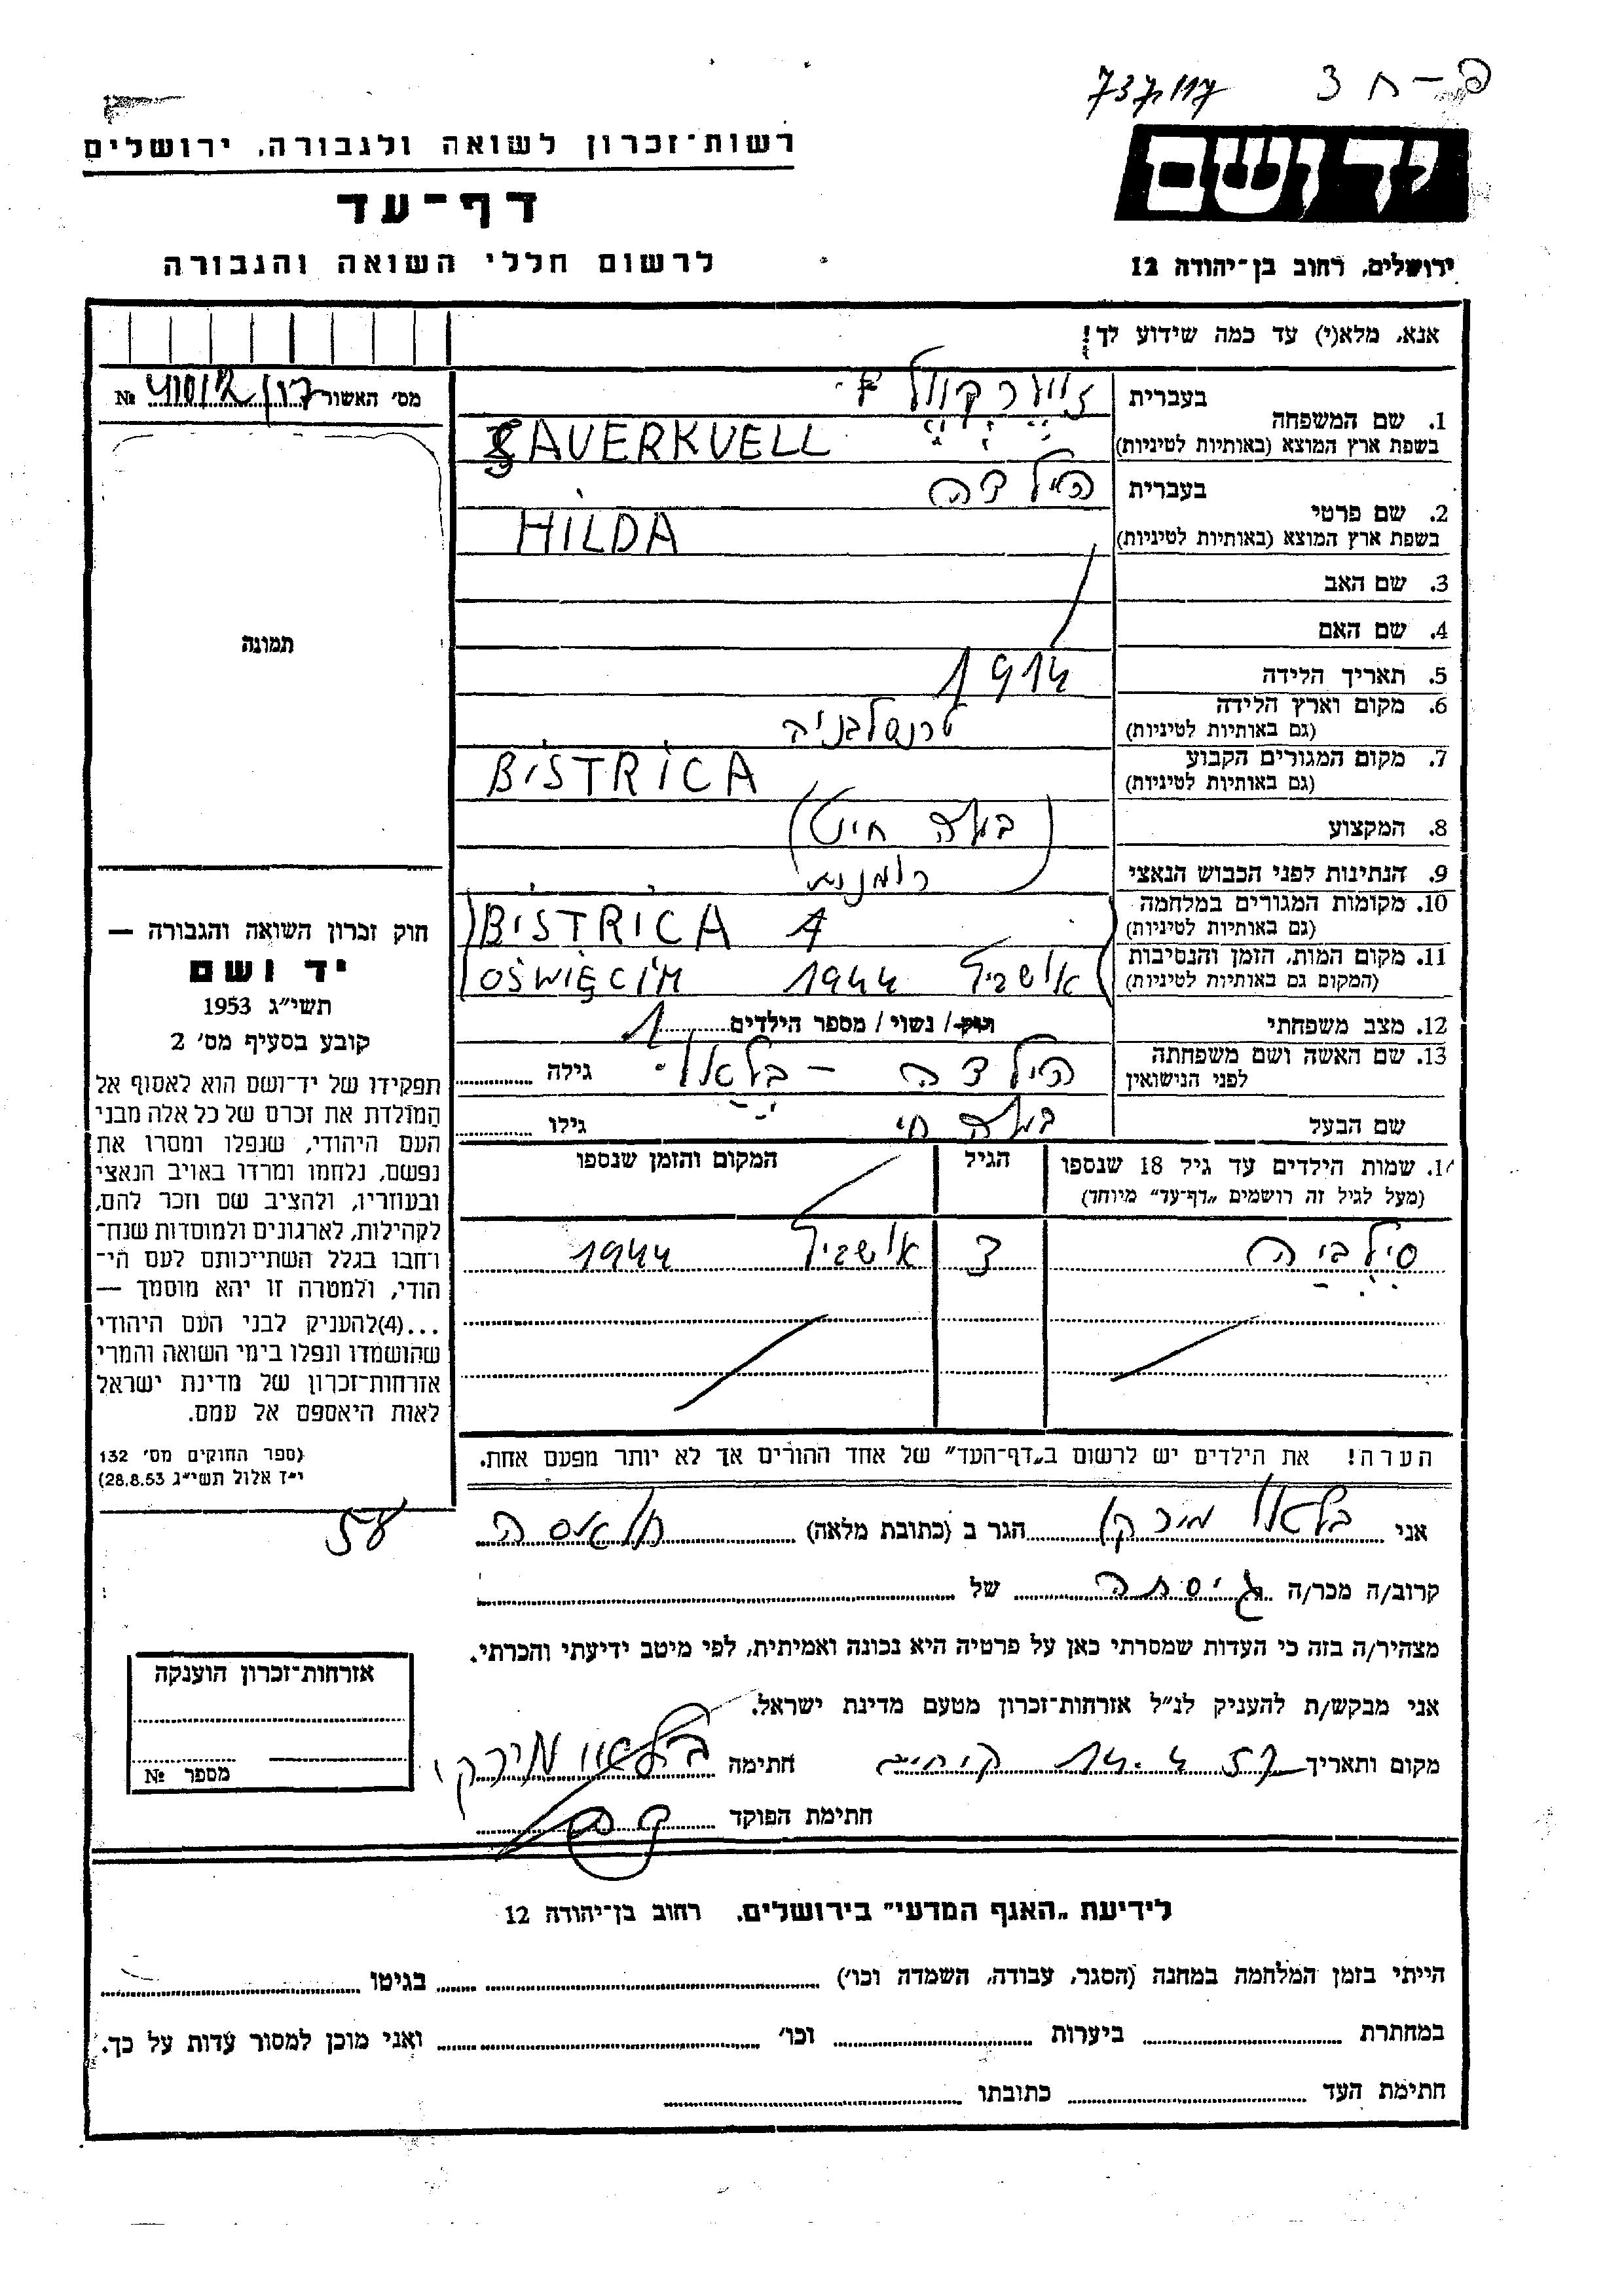 פ–ח 3
737/117
יד ושם
ירושלים, רחוב בן־יהודה 12
רשות־זכרון לשואה ולגבורה, ירושלים
דף־עד
לרשום חללי השואה והגבורה
אנא, מלא(י) עד כמה שידוע לך!
1. שם המשפחה
בעברית
בשפת ארץ המוצא (באותיות לטיניות) SAUERKVELL
2. שם פרטי
בעברית הילדה
בשפת ארץ המוצא (באותיות לטיניות) HILDA
3. שם האב
4. שם האם
5. תאריך הלידה 1914
6. מקום וארץ הלידה
(גם באותיות לטיניות) טרנסלבניה
7. מקום המגורים הקבוע
(גם באותיות לטיניות) BISTRICA
8. המקצוע (בעלה חיט)
9. הנתינות לפני הכבוש הנאצי רומנית
10. מקומות המגורים במלחמה
(גם באותיות לטיניות) BISTRICA
11. מקום המות, הזמן והנסיבות
(המקום גם באותיות לטיניות) אושביץ 1944 OŚWIĘCIM
12. מצב משפחתי רווק/ נשוי/ מספר הילדים 1
13. שם האשה ושם משפחתה
לפני הנישואין הילדה – בלאו גילה
שם הבעל בעלה חי גילו
14. שמות הילדים עד גיל 18 שנספו
(מעל לגיל זה רושמים „דף־עד” מיוחד)
הגיל
המקום והזמן שנספו
סילביה 3 אושביץ 1944
הערה! את הילדים יש לרשום ב„דף־העד” של אחד ההורים אך לא יותר מפעם אחת.
מס׳ האשור № 
תמונה
חוק זכרון השואה והגבורה —
יד ושם
תשי״ג 1953
קובע בסעיף מס׳ 2
תפקידו של יד־ושם הוא לאסוף אל
המולדת את זכרם של כל אלה מבני
העם היהודי, שנפלו ומסרו את
נפשם, נלחמו ומרדו באויב הנאצי
ובעוזריו, ולהציב שם וזכר להם,
לקהילות, לארגונים ולמוסדות שנח־
רחבו בגלל השתייכותם לעם הי־
הודי, ולמטרה זו יהא מוסמך —
...(4)להעניק לבני העם היהודי
שהושמדו ונפלו בימי השואה והמרי
אזרחות־זכרון של מדינת ישראל
לאות היאספם אל עמם.
(ספר החוקים מס׳ 132
י״ז אלול תשי״ג 28.8.53)
אני בלאו מירקו הגר ב (כתובת מלאה)
קרוב/ה מכר/ה גיסתה של
מצהיר/ה בזה כי העדות שמסרתי כאן על פרטיה היא נכונה ואמיתית, לפי מיטב ידיעתי והכרתי.
אני מבקש/ת להעניק לנ״ל אזרחות־זכרון מטעם מדינת ישראל.
מקום ותאריך 14.4.57 חתימה בלאו מירקו
חתימת הפוקד
אזרחות־זכרון הוענקה
מספר №
לידיעת „האגף המדעי” בירושלים, רחוב בן־יהודה 12
הייתי בזמן המלחמה במחנה (הסגר, עבודה, השמדה וכו׳) בגיטו
במחתרת ביערות וכו׳ ואני מוכן למסור עדות על כך.
חתימת העד כתובתו